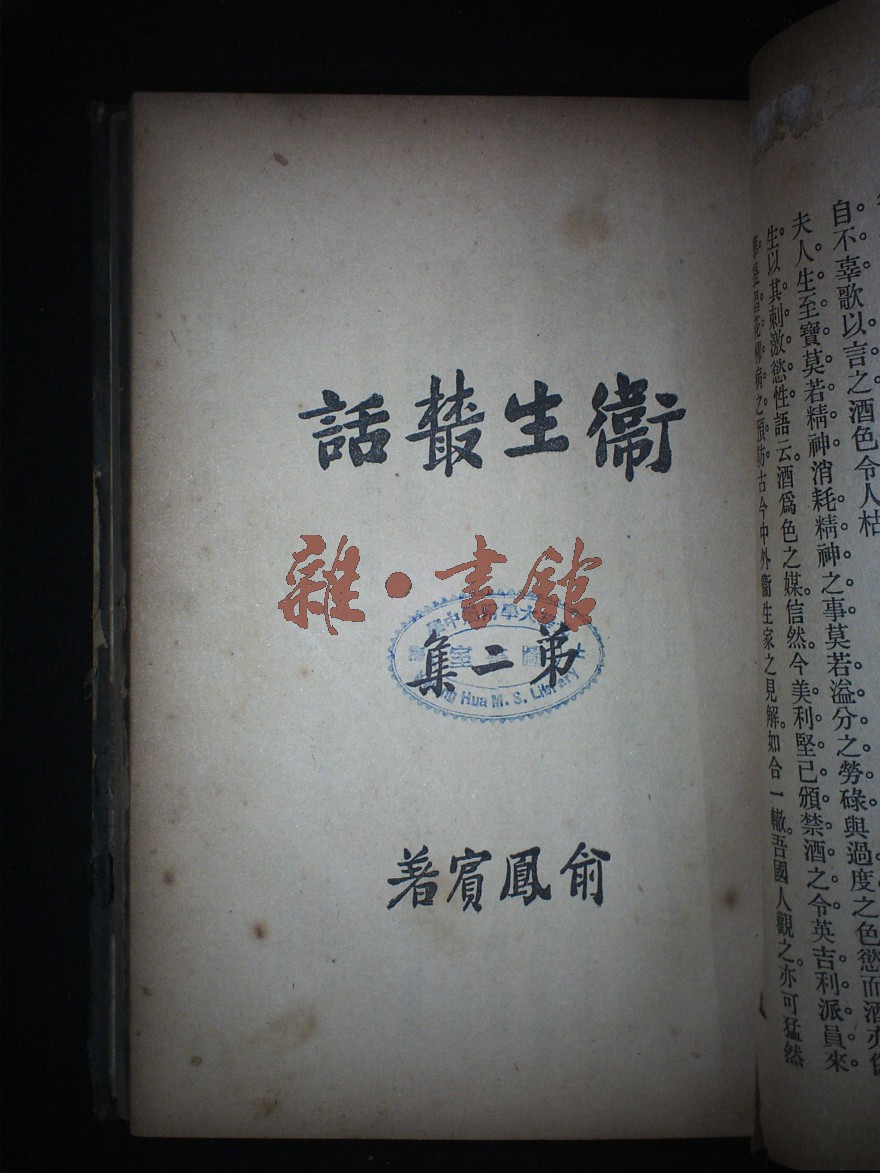 衞生叢話
雜·書館
第二集
Hua M. S. Library
俞鳳賓著
自不辜歌以言之酒色令人枯
夫人生至寶莫若精神消耗精神之事莫若溢分之勞碌與過度之色慾而酒亦
生以其刺激慾性語云酒爲色之媒信然今美利堅已頒禁酒之令英吉利派員來
病之預防古今中外衞生家之見解如合一轍吾國人觀之亦可猛然